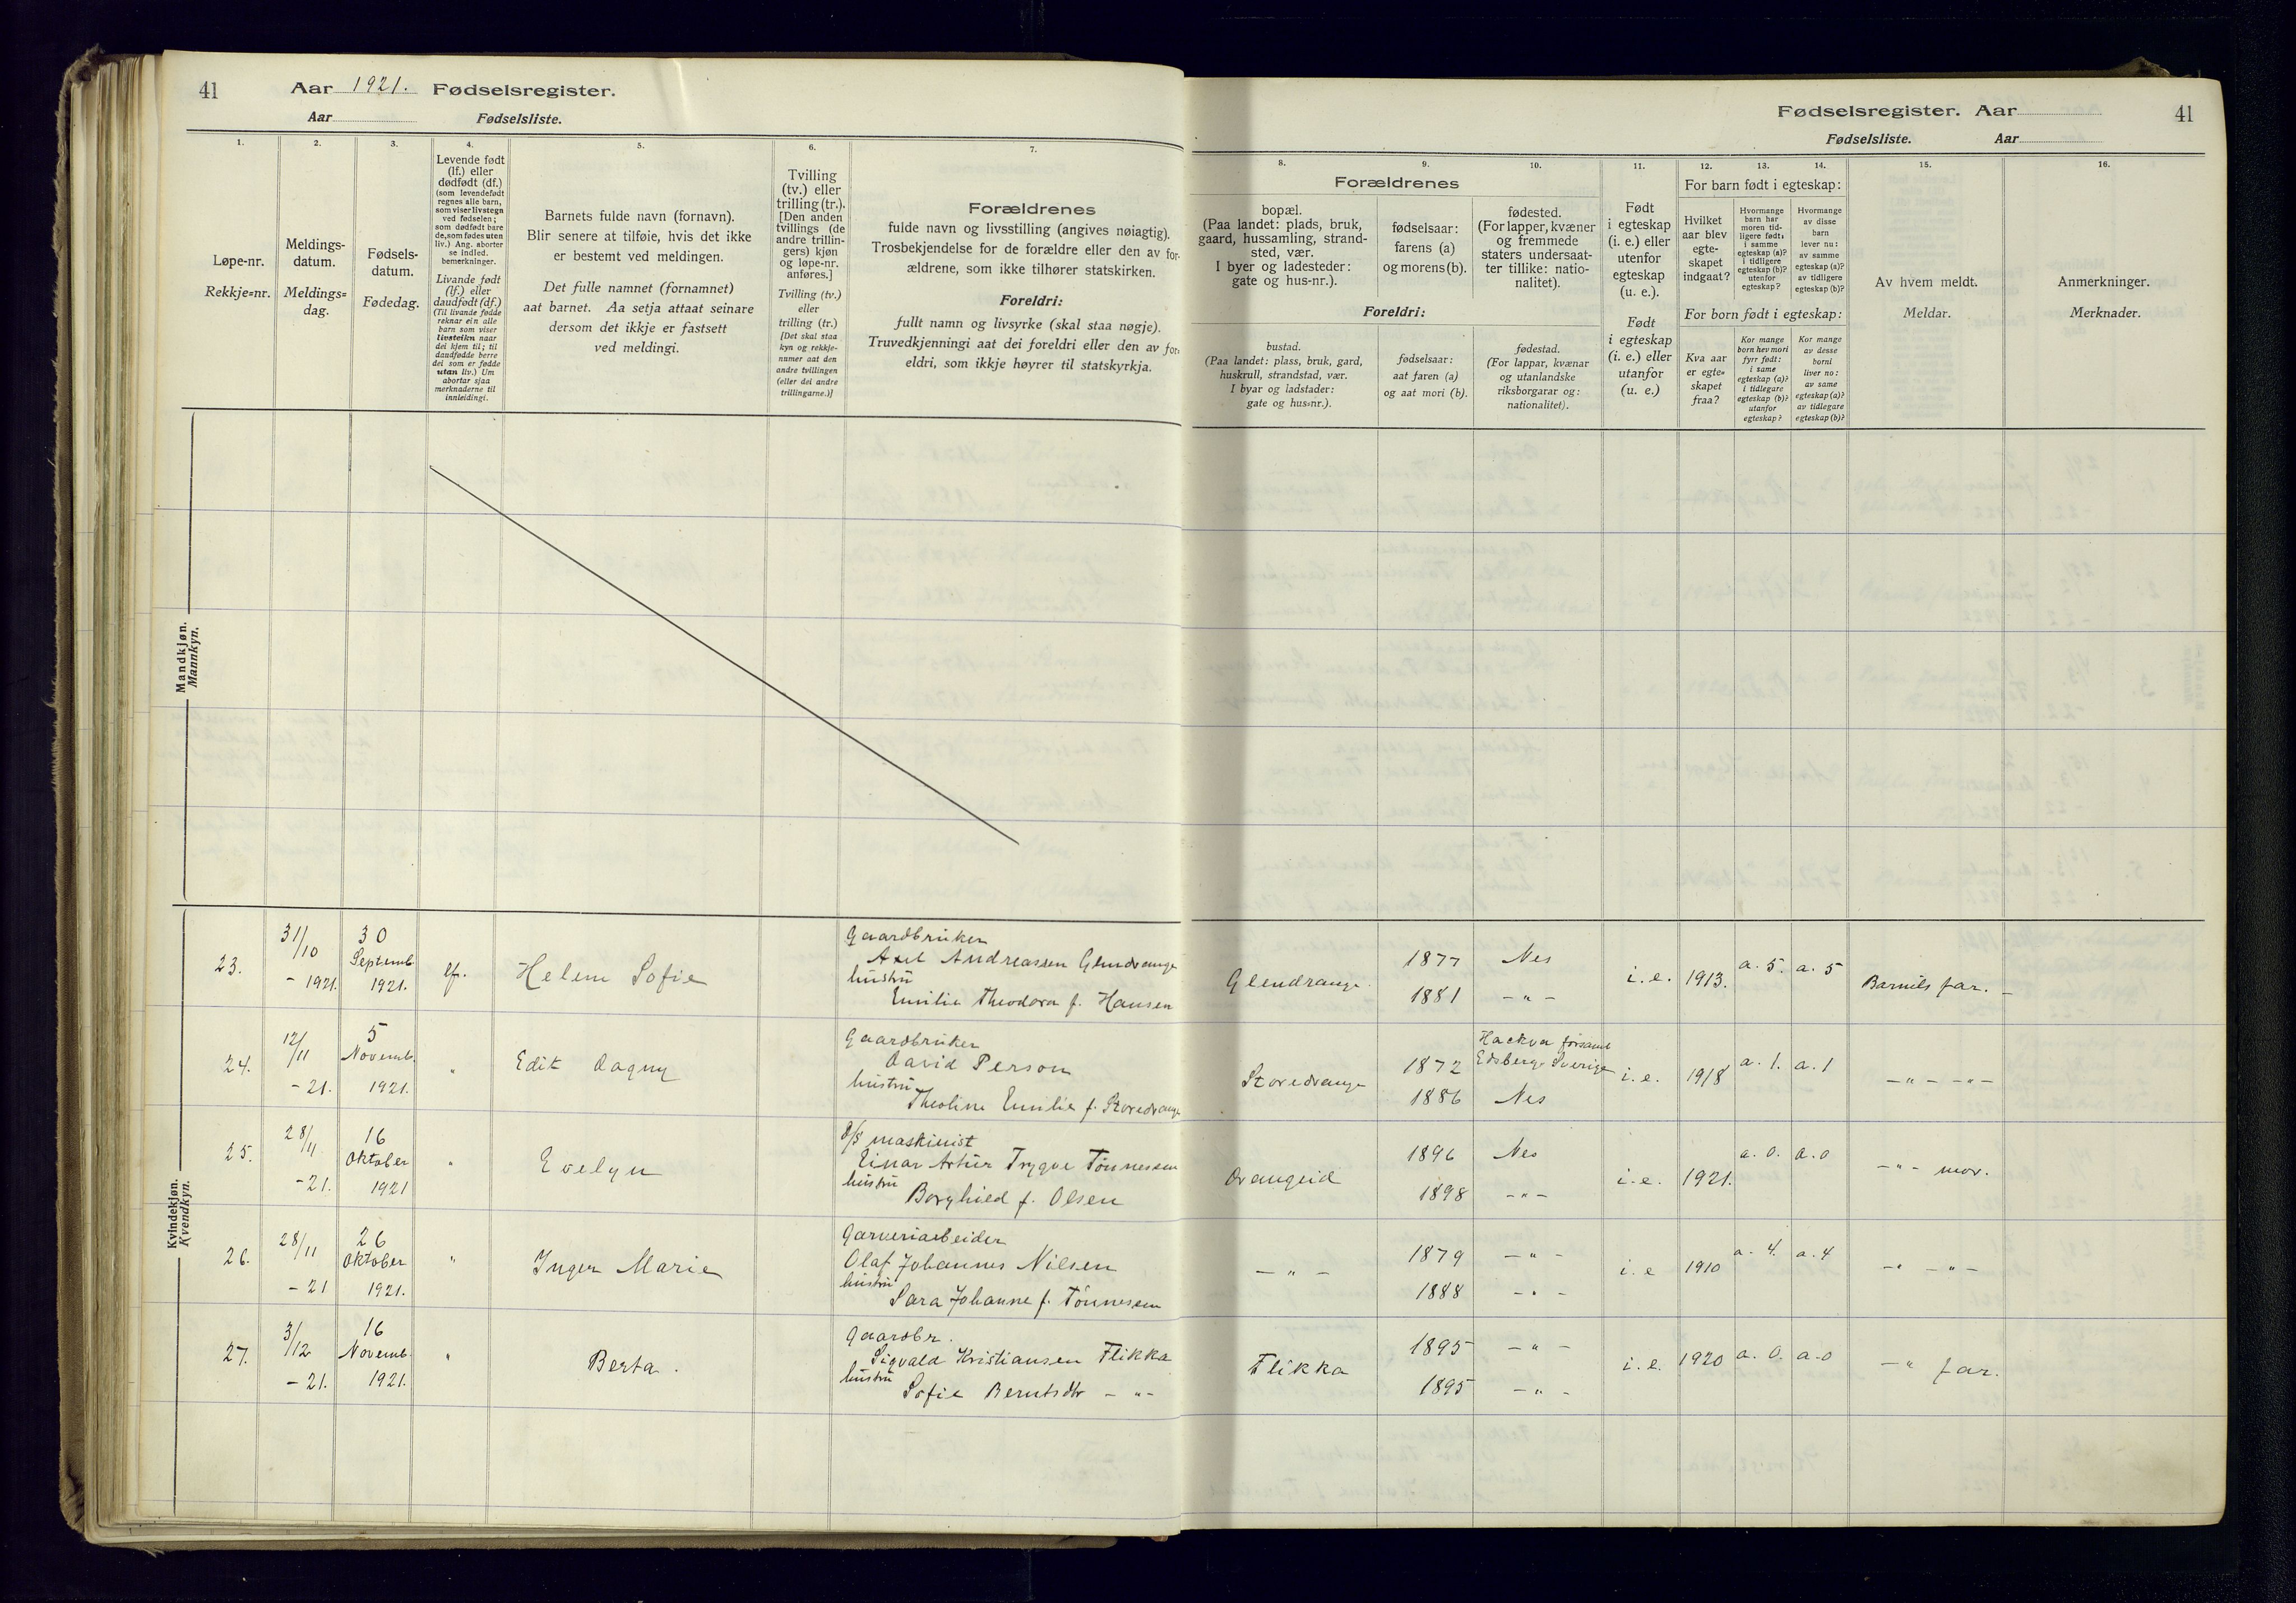 41 Aar 1921. Fødselsregister.
Aar Fødselsliste.
1.
2.
3.
4.
5.
6.
7.
Løpe-nr.
Rekkje=nr.
Meldings-
datum.
Meldings=
dag.
Fødsels-
datum.
Fødedag.
Levende født
(lf.) eller
dødfødt (df.)
(som levendefødt
regnes alle barn,
som viser livstegn
ved fødselen;
som dødfødt bare
de, som fødes uten
liv.) Ang. aborter
se indled.
bemerkninger.
Livande født
(lf.) eller
daudfødt (df.)
(Til livande fødde
reknar ein alle
barn som viser
livsteikn naar
dei kjem til; til
daudfødde berre
dei som er fødde
utan liv.) Um
abortar sjaa
merknaderne til
innleidingi.
Barnets fulde navn (fornavn).
Blir senere at tilføie, hvis det ikke
er bestemt ved meldingen.
Det fulle namnet (fornamnet)
aat barnet. Aa setja attaat seinare
dersom det ikkje er fastsett
ved meldingi.
Tvilling
(tv.) eller
trilling (tr.).
[Den anden
tvillings (de
andre trillin-
gers) kjøn
og løpe-nr.
anføres.]
Tvilling (tv.)
eller
trilling (tr.)
[Det skal staa
kyn og rekkje-
numer aat den
andre tvillingen
(eller dei andre
trillingarne.)]
Forældrenes
fulde navn og livsstilling (angives nøiagtig).
Trosbekjendelse for de forældre eller den av for-
ældrene, som ikke tilhører statskirken.
Foreldri:
fullt namn og livsyrke (skal staa nøgje).
Truvedkjenningi aat dei foreldri eller den av for-
eldri, som ikkje høyrer til statskyrkja.
Fødselsregister. Aar 41
Fødselsliste. Aar
8.
9.
10.
11.
12.
13.
14.
15.
16.
Forældrenes
bopæl.
(Paa landet: plads, bruk,
gaard, hussamling, strand-
sted, vær.
I byer og ladesteder:
gate og hus-nr.).
fødselsaar:
farens (a)
og morens (b).
fødested.
(For lapper, kvæner
og fremmede
staters undersaat-
ter tillike: natio-
nalitet).
Foreldri:
bustad.
(Paa landet: plass, bruk, gard,
huskrull, strandstad, vær.
I byar og ladstader:
gate og hus=nr.).
fødselsaar:
aat faren (a)
og aat mori (b).
fødestad.
(For lappar, kvænar
og utanlandske
riksborgarar og:
nationalitet).
Født
i egteskap
(i. e.) eller
utenfor
egteskap
(u. e.).
Født
i egteskap
(i. e.) eller
utanfor
(u. e.)
For barn født i egteskap:
Hvilket
aar blev
egte-
skapet
indgaat?
Hvormange
barn har
moren tid-
ligere født:
i samme
egteskap (a)?
i tidligere
egteskap (b)?
utenfor
egteskap?
Hvormange
av disse
barn
lever nu:
av samme
egteskap (a)?
av tidligere
egteskap (b)?
For born født i egteskap:
Kva aar
er egte=
skapet
fraa?
Kor mange
born hev mori
fyrr født:
i same
egteskap (a)?
i tidlegare
egteskap (b)?
utanfor
egteskap?
Kor mange
av desse
borni
liver no:
av same
egteskap (a)?
av tidlegare
egteskap (b)?
Av hvem meldt.
Meldar.
Anmerkninger.
Merknader.
Mandkjøn.
Mannkyn.
Kvindekjøn.
Kvendkyn.
23.
31/10
- 1921.
30
Septemb
1921.
lf.
Helene Sofie
Gaardbruker
Axel Andreassen Glendrange
hustru
Emilie Theodora f. Hansen
Glendrange
1877
1881
Nes
- " -
i. e.
1913.
a. 5.
a. 5
Barnets far. -
24.
12/11
- 21.
5
Novemb.
1921.
"
Edit Dagny
Gaardbruker
David Person
hustru
Theoline Emilie f. Storedrange
Storedrange
1872
1886
Hackva forsaml
Edsberg. Sverige
Nes
i. e.
1918
a. 1.
a. 1
- " - - " -
25.
28/11
- 21.
16
Oktober
1921
"
Evelyn
d/s maskinist
Einar Artur Trygve Tønnessen
hustru
Borghild f. Olsen
Drangeid
1896
1898
Nes
- " -
i. e.
1921.
a. 0.
a. 0
- " - mor.
26.
28/11
- 21
26
Oktober
1921.
"
Inger Marie
Garveriarbeider
Olaf Johannes Nilsen
hustru
Sara Johanne f. Tønnessen
- " -
1879
1888
- " -
- " -
i. e
1910
a. 4.
a. 4
- " - - " -
27.
3/12
- 21.
16
Novemb.
1921.
"
Berta.
Gaardbr.
Sigvald Kristiansen Flikka
hustru
Sofie Berntsdtr - " -
Flikka
1895
1895
- " -
- " -
i. e.
1920
a. 0.
a. 0
- " far.